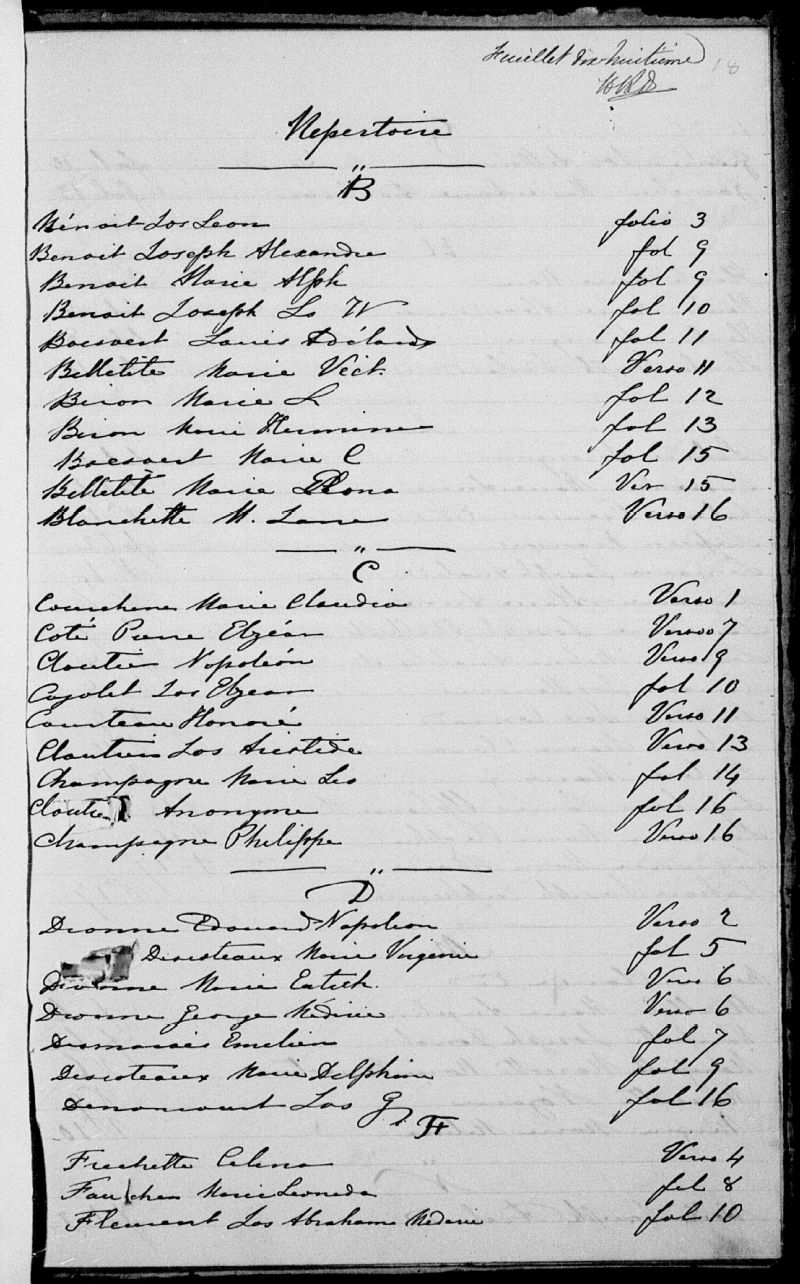 Feuillet dix huitième 18
Répertoire
B
Bénoit Jos Leon folio 3
Benoit Joseph Alexandre fol 9
Benoit Marie Alph fol 9
Benoit Joseph Ls W fol 10
Boisvert Louis Adélard fol 11
Belletite Marie Vict. Verso 11
Biron Marie L fol 12
Biron Marie Hermine fol 13
Boisvert Marie C fol 15
Belletêtê Marie Rona Ver 15
Blanchette M. Laure Verso 16
C
Courchene Marie Claudia Verso 1
Coté Pierre Elzéar Verso 7
Cloutier Napoléon Verso 9
Cajolet Jos Elzear fol 10
Courteau Honoré Verso 11
Cloutier Jos Aristide Verso 13
Champagne Marie Leo fol 14
Cloutier Anonyme fol 16
Champagne Philippe Verso 16
D
Dionne Edouard Napoleon Verso 2
Descoteaux Marie Virginie fol 5
Dionne Marie Verso 6
Dionne George Médéric Verso 6
Desmarais Emelien fol 7
Descoteaux Marie Delphine fol 9
Denoncourt Jos G fol 16
F
Frechette Celina Verso 4
Faucher Marie Leoneda fol 8
Fleurent Jos Abraham Mederic fol 10